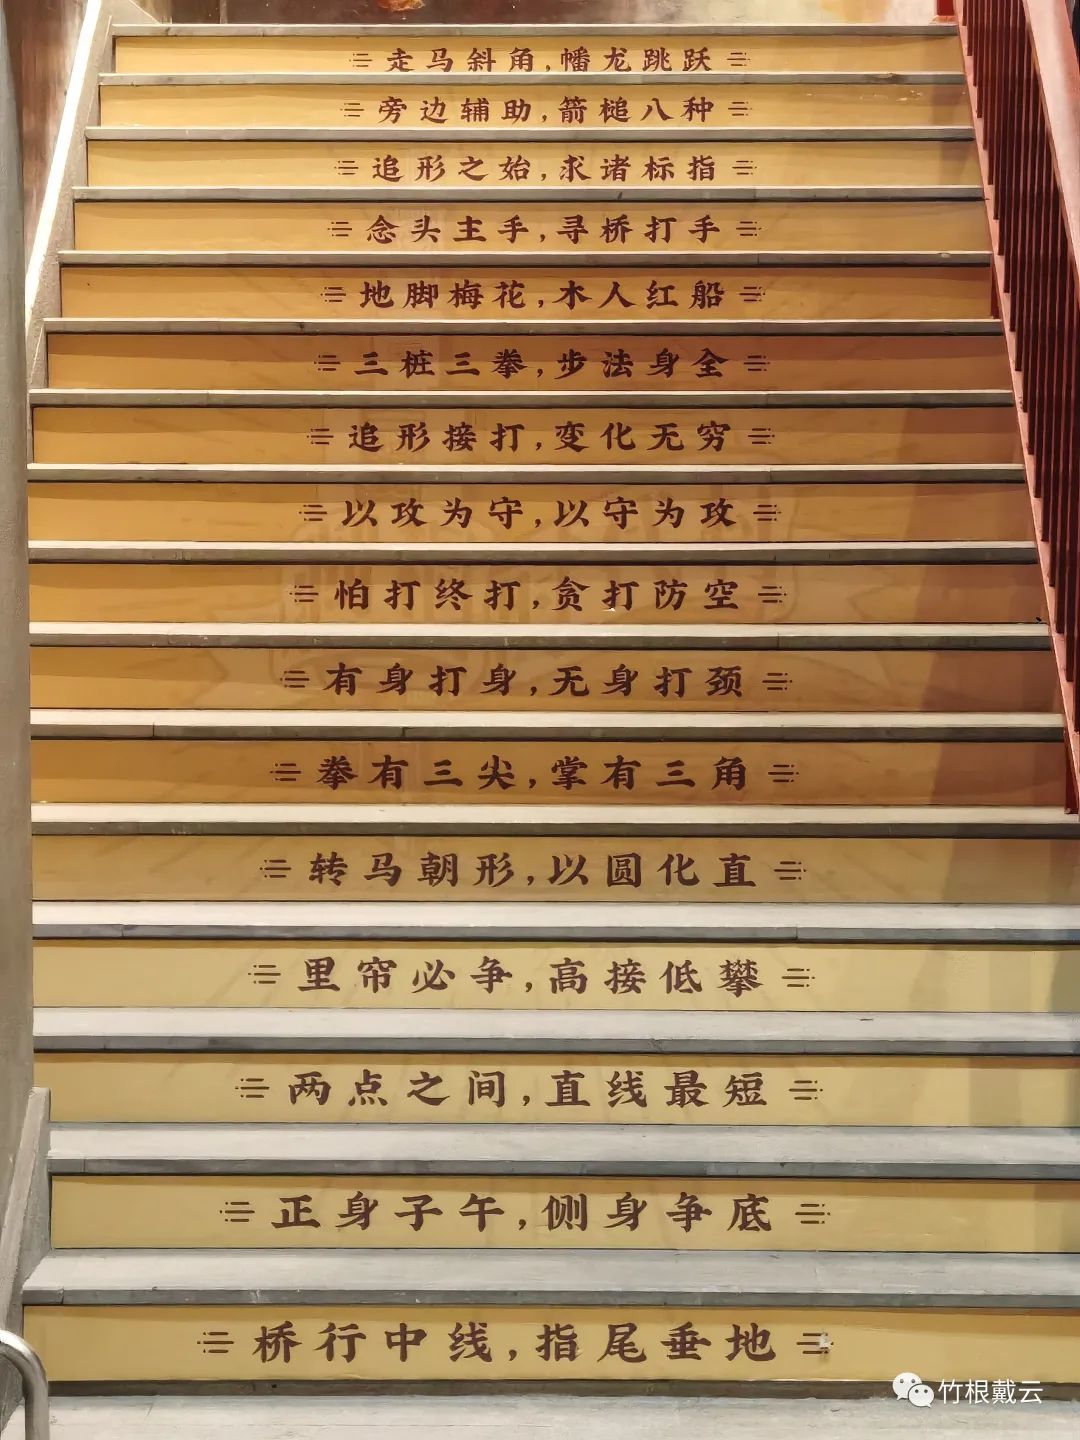 走马斜角,幡龙跳跃
旁边辅助,箭槌八种
追形之始,求诸标指
念头主手,寻桥打手
地脚梅花,木人红船
三桩三拳,步法身全
追形接打,变化无穷
以攻为守,以守为攻
怕打终打,贪打防空
有身打身,无身打颈
拳有三尖,掌有三角
转马朝形,以圆化直
里帘必争,高接低攀
两点之间,直线最短
正身子午,侧身争底
桥行中线,指尾垂地
竹根戴云